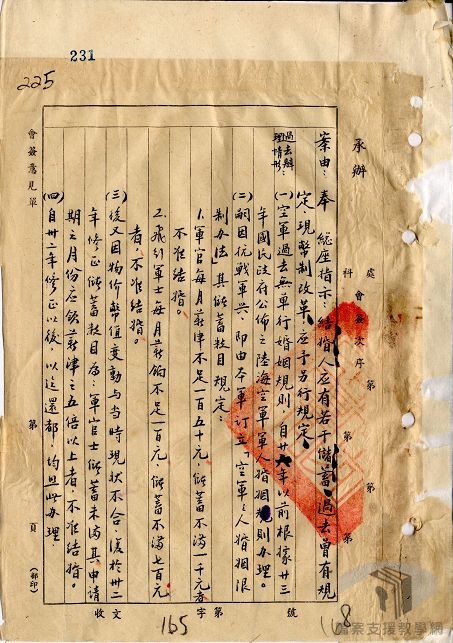 231
225
承辦
處
科
會簽次序
第
第
第
案由：奉 總座指示：結婚人應有若干儲蓄，過去曾有規
定，現幣制改革，應予另行規定。
過去辦
理情形：
(一)空軍過去無單行婚姻規則，自廿六年以前根據廿三
年國民政府公佈之陸海空軍軍人婚姻規則辦理。
(二)嗣因抗戰軍興，即由本軍訂立「空軍軍人婚姻限
制辦法」其儲蓄數目規定：
1.軍官每月薪津不足一百五十元，儲蓄不滿一千元者
不准結婚。
2.飛行軍士每月薪餉不足一百元，儲蓄不滿七百元
者，不准結婚。
(三)後又因物價幣值變動與當時現狀不合，復於卅二
年修正儲蓄數目為：軍官士儲蓄未滿其申請
期之月份應領薪津之五倍以上者，不准結婚。
(四)自卅二年修正以後，以迄還都，均照此辦理。
會簽意見單
第
頁
(郵印)
收文
字第
號
165
168
檔案支援教學網